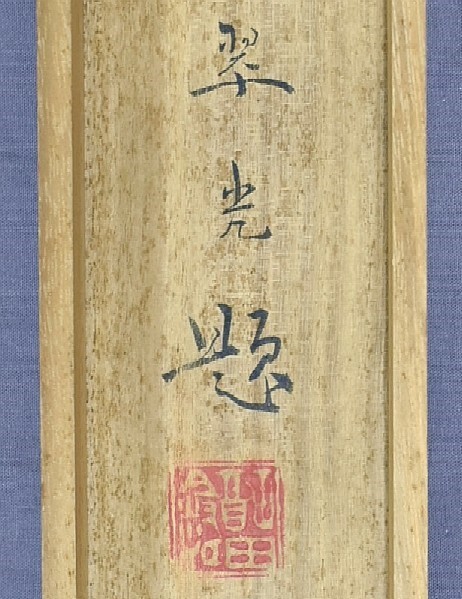 翠光題